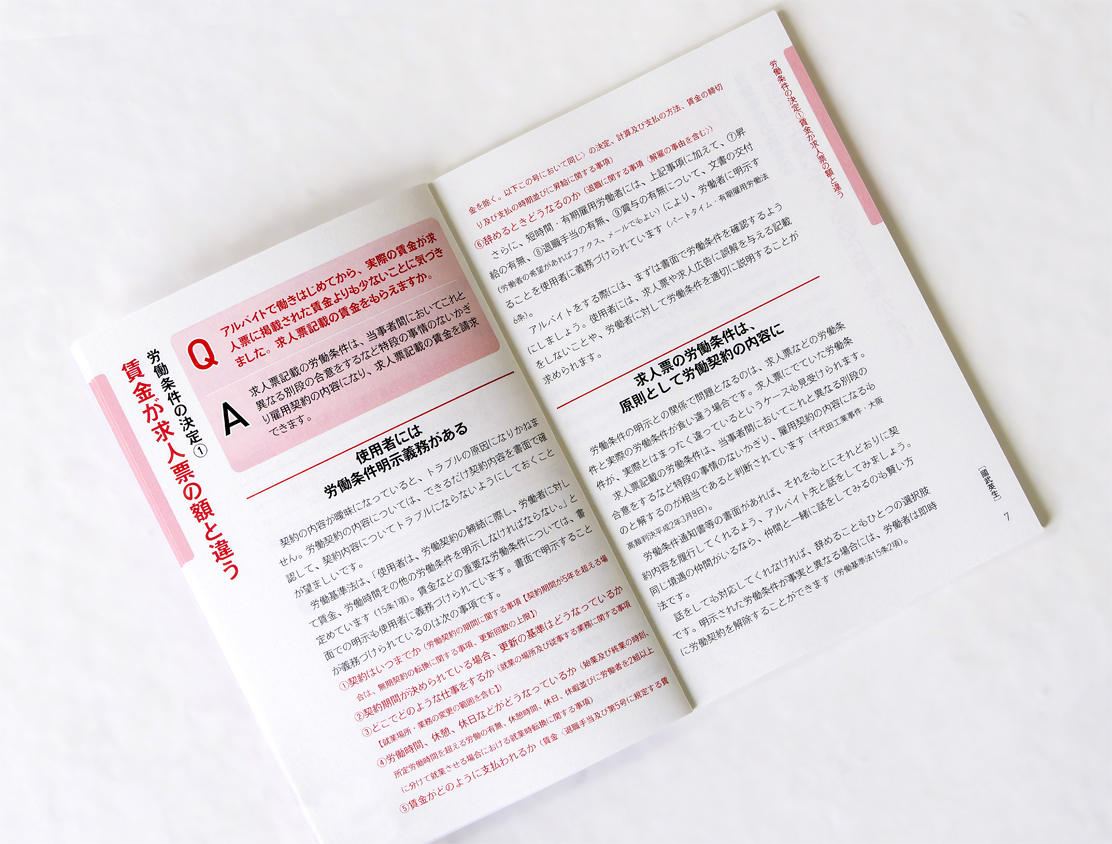 労働条件の決定①
賃金が求人票の額と違う
Q
アルバイトで働きはじめてから、実際の賃金が求
人票に掲載された賃金よりも少ないことに気づき
ました。求人票記載の賃金をもらえますか。
A
求人票記載の労働条件は、当事者間においてこれと
異なる別段の合意をするなど特段の事情のないかぎ
り雇用契約の内容になり、求人票記載の賃金を請求
できます。
使用者には
労働条件明示義務がある
契約の内容が曖昧になっていると、トラブルの原因になりかねま
せん。労働契約の内容については、できるだけ契約内容を書面で確
認して、契約内容についてトラブルにならないようにしておくこと
が望ましいです。
労働基準法は、「使用者は、労働契約の締結に際し、労働者に対し
て賃金、労働時間その他の労働条件を明示しなければならない。」と
定めています（15条1項）。賃金などの重要な労働条件については、書
面での明示も使用者に義務づけられています。書面で明示すること
が義務づけられているのは次の事項です。
①契約はいつまでか（労働契約の期間に関する事項【契約期間が5年を超える場
合は、無期契約の転換に関する事項、更新回数の上限】）
②契約期間が決められている場合、更新の基準はどうなっているか
③どこでどのような仕事をするか（就業の場所及び従事する業務に関する事項
【就業場所・業務の変更の範囲を含む】）
④労働時間、休憩、休日などがどうなっているか（始業及び終業の時刻、
所定労働時間を超える労働の有無、休憩時間、休日、休暇並びに労働者を2組以上
に分けて就業させる場合における就業時転換に関する事項）
⑤賃金がどのように支払われるか（賃金〈退職手当及び第5号に規定する賃
労働条件の決定①賃金が求人票の額と違う
金を除く。以下この号において同じ〉の決定、計算及び支払の方法、賃金の締切
り及び支払の時期並びに昇給に関する事項）
⑥辞めるときどうなるのか（退職に関する事項〈解雇の事由を含む〉）
さらに、短時間・有期雇用労働者には、上記事項に加えて、⑦昇
給の有無、⑧退職手当の有無、⑨賞与の有無について、文書の交付
（労働者の希望があればファクス、メールでもよい）により、労働者に明示す
ることを使用者に義務づけられています（パートタイム・有期雇用労働法
6条）。
アルバイトをする際には、まずは書面で労働条件を確認するよう
にしましょう。使用者には、求人票や求人広告に誤解を与える記載
をしないことや、労働者に対して労働条件を適切に説明することが
求められます。
求人票の労働条件は、
原則として労働契約の内容に
労働条件の明示との関係で問題となるのは、求人票などの労働条
件と実際の労働条件が食い違う場合です。求人票にでていた労働条
件が、実際とはまったく違っているというケースも見受けられます。
求人票記載の労働条件は、当事者間においてこれと異なる別段の
合意をするなど特段の事情のないかぎり、雇用契約の内容になるも
のと解するのが相当であると判断されています（千代田工業事件・大阪
高裁判決平成2年3月8日）。
労働条件通知書等の書面があれば、それをもとにそれどおりに契
約内容を履行してくれるよう、アルバイト先と話をしてみましょう。
同じ境遇の仲間がいるなら、仲間と一緒に話をしてみるのも賢い方
法です。
話をしても対応してくれなければ、辞めることもひとつの選択肢
です。明示された労働条件が事実と異なる場合には、労働者は即時
に労働契約を解除することができます（労働基準法15条2項）。
7